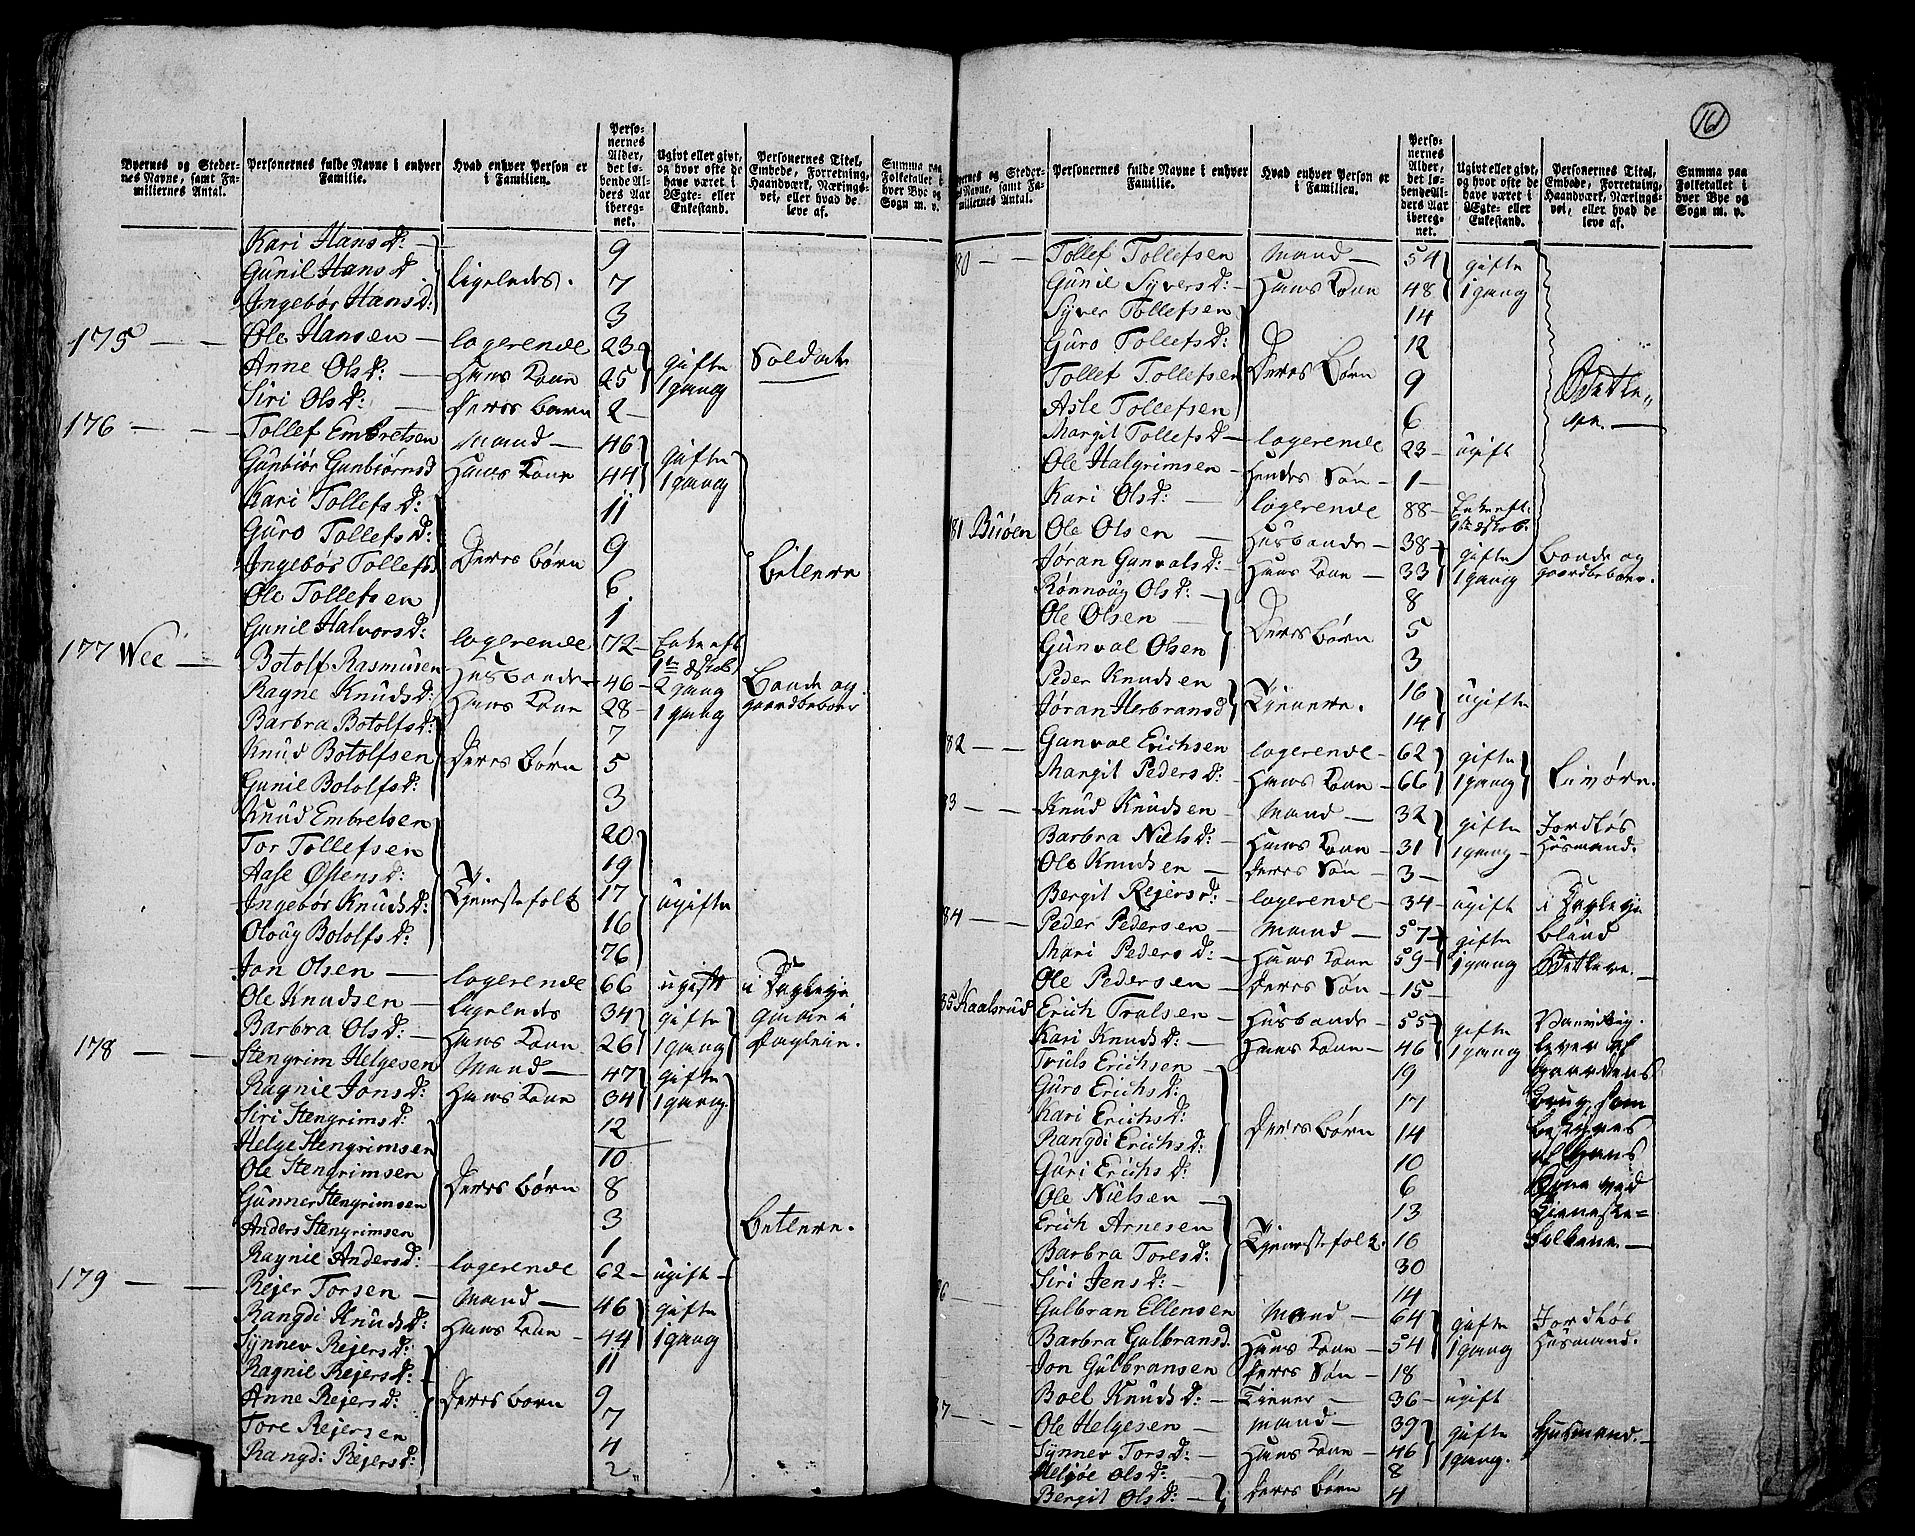 161
Byernes og Steder-
nes Navne, samt Fa-
miliernes Antal.
Personernes fulde Navne i enhver
Familie.
Hvad enhver Person er
i Familien.
Perso-
nernes
Alder,
det lø-
bende Al-
ders Aar
iberegnet.
Ugivt eller givt,
og hvor ofte de
have været i
Ægte- eller
Enkestand.
Personernes Titel,
Embede, Forretning,
Haandværk, Nærings-
vei, eller hvad de
leve af.
Summa paa
Folketallet i
hver Bye og
Sogn m. v.
Kari Hansd: — 9
Gunil Hansd ligeledes. 7
Ingebør Hansd: 3
175 — — Ole Hansen — logerende 23 gifte Soldat
Anne Olsd: — Hans Kone 25 1 gang
Siri Olsd: — Deres barn 2
176 — — Tollef Embretsen Mand — 46 gifte
Gunbiør Gunbiørnsd Hans Kone 44 1 gang
Kari Tollefsd: 11
Guro Tollefsd: 9
Ingebør Tollefsd Deres børn 6 Betlere
Ole Tollefsen 1
Gunil Halvorsd: logerende 72 — Enke eft. 1te Ægtesk.
177 Wee — Botolf Rasmusen Husbonde — 46 — 2 gang Bonde og
Ragne Knudsd: Hans Kone 28 — 1 gang gaardbeboer
Barbra Botolfsd: 7
Knud Botolfsen Deres børn 5
Gunil Botolfsd: 3
Knud Embretsen 20
Tor Tollefsen 19
Aase Østensd: Tjenestefolk 17 ugifte
Ingebør Knudsd: 16
Oloug Botolfsd: 76
Jon Olsen — logerende 66 ugift i Dagleje
Ole Knudsen — ligeledes 34 gifte
Barbra Olsd: — Hans Kone 26 1 gang Dagleie.
178 — — Stengrim Helgesen Mand — 47 gifte
Ragnie Jonsd: Hans Kone 34 1 gang.
Siri Stengrimsd: 12
Helge Stengrimsen 10
Ole Stengrimsen Deres børn 8
Gunner Stengrimsen 3 Betlere.
Anders Stengrimsen 1
Ragnie Andersd: logerende 62 — ugift —
179 — — Rejer Torsen — Mand — 46 gifte
Rangdi Knudsd: Hans Kone — 44 1 gang
Synnev Rejersd: 11
Ragnil Rejersd: 9
Anne Rejersd: Deres børn 7
Tore Rejersen 4
Rangdi Rejersd: 2
Byernes og Steder-
nes Navne, samt Fa-
miliernes Antal.
Personernes fulde Navne i enhver
Familie.
Hvad enhver Person er
i Familien.
Perso-
nernes
Alder,
det lø-
bende Al-
ders Aar
iberegnet.
Ugivt eller givt,
og hvor ofte de
have været i
Ægte- eller
Enkestand.
Personernes Titel,
Embede, Forretning,
Haandværk, Nærings-
vei, eller hvad de
leve af.
Summa paa
Folketallet i
hver Bye og
Sogn m. v.
80 — — Tollef Tollefsen Mand — 54 gifte
Gunil Syversd: — Hans Kone 48 1 gang
Syver Tollefsen 14
Guro Tollefsd: 12
Tollef Tollefsen Deres Børn 9 Betle-
Asle Tollefsen 6 re. —
Margit Tollefsd — logerende 23 — ugift
Ole Halgrimsen — Hendes Søn — 1 —
Kari Olsd: — logerende 88 — Enke eft. 1te Ægtesk.
81 Buøen Ole Olsen — Husbonde — 38 gifte Bonde og
Jøran Gunvalsd: — Hans Kone — 33 1 gang gaardbeboer.
Rønnoug Olsd: — 8
Ole Olsen — Deres børn 5
Gunval Olsen 3
Peder Knudsen 16 ugifte
Jøran Herbransd Tjenere. 14
82 — — Gunval Erichsen logerende — 62 gifte
Margit Pedersd: — Hans Kone — 66 1 gang
83 — — Knud Knudsen — Mand — 32 gifte Jordløs
Barbra Nielsd: — Hans Kone — 31 1 gang — Husmand.
Ole Knudsen — Deres Søn — 3 —
Bergit Rejersd: — logerende — 34 — ugift i Dagleje
84 — — Peder Pedersen — Mand — 57 gifte blind
Mari Pedersd: — Hans Kone 59 1 gang Betlere. —
Ole Pedersen — Deres Søn — 15 —
85 Kaalsrud Erich Trulsen — Husbonde — 55 gifte Vanvittig,
Kari Knudsd: — Hans Kone — 46 1 gang lever af
Truls Erichsen — 19 Gaardens
Guro Erichsd: 17 Brug, som
Kari Erichsd: Deres børn 14 besørges
Rangdi Erichsd: 10 af Hans
Guri Erichsd: 6 Kone ved
Ole Nielsen — 13 Tieneste-
Erich Arnesen Tjenestefolk. 16 folkene. —
Barbra Toresd: 30
Siri Jensd: — 14
86 — — Gulbran Ellensen Mand — 64 gifte Jordløs
Barbra Gulbransd. Hans Kone — 54 1 gang Husmand.
Jon Gulbransen Deres Søn — 18
Boel Knudsd: — Tiener — 36 — ugift
87 — — Ole Helgesen — Mand — 39 gifte Husmand. —
Synnev Torsd: — Hans Kone — 46 1 gang.
Helgøe Olsd: — Deres børn 8
Bergit Olsd: — 4